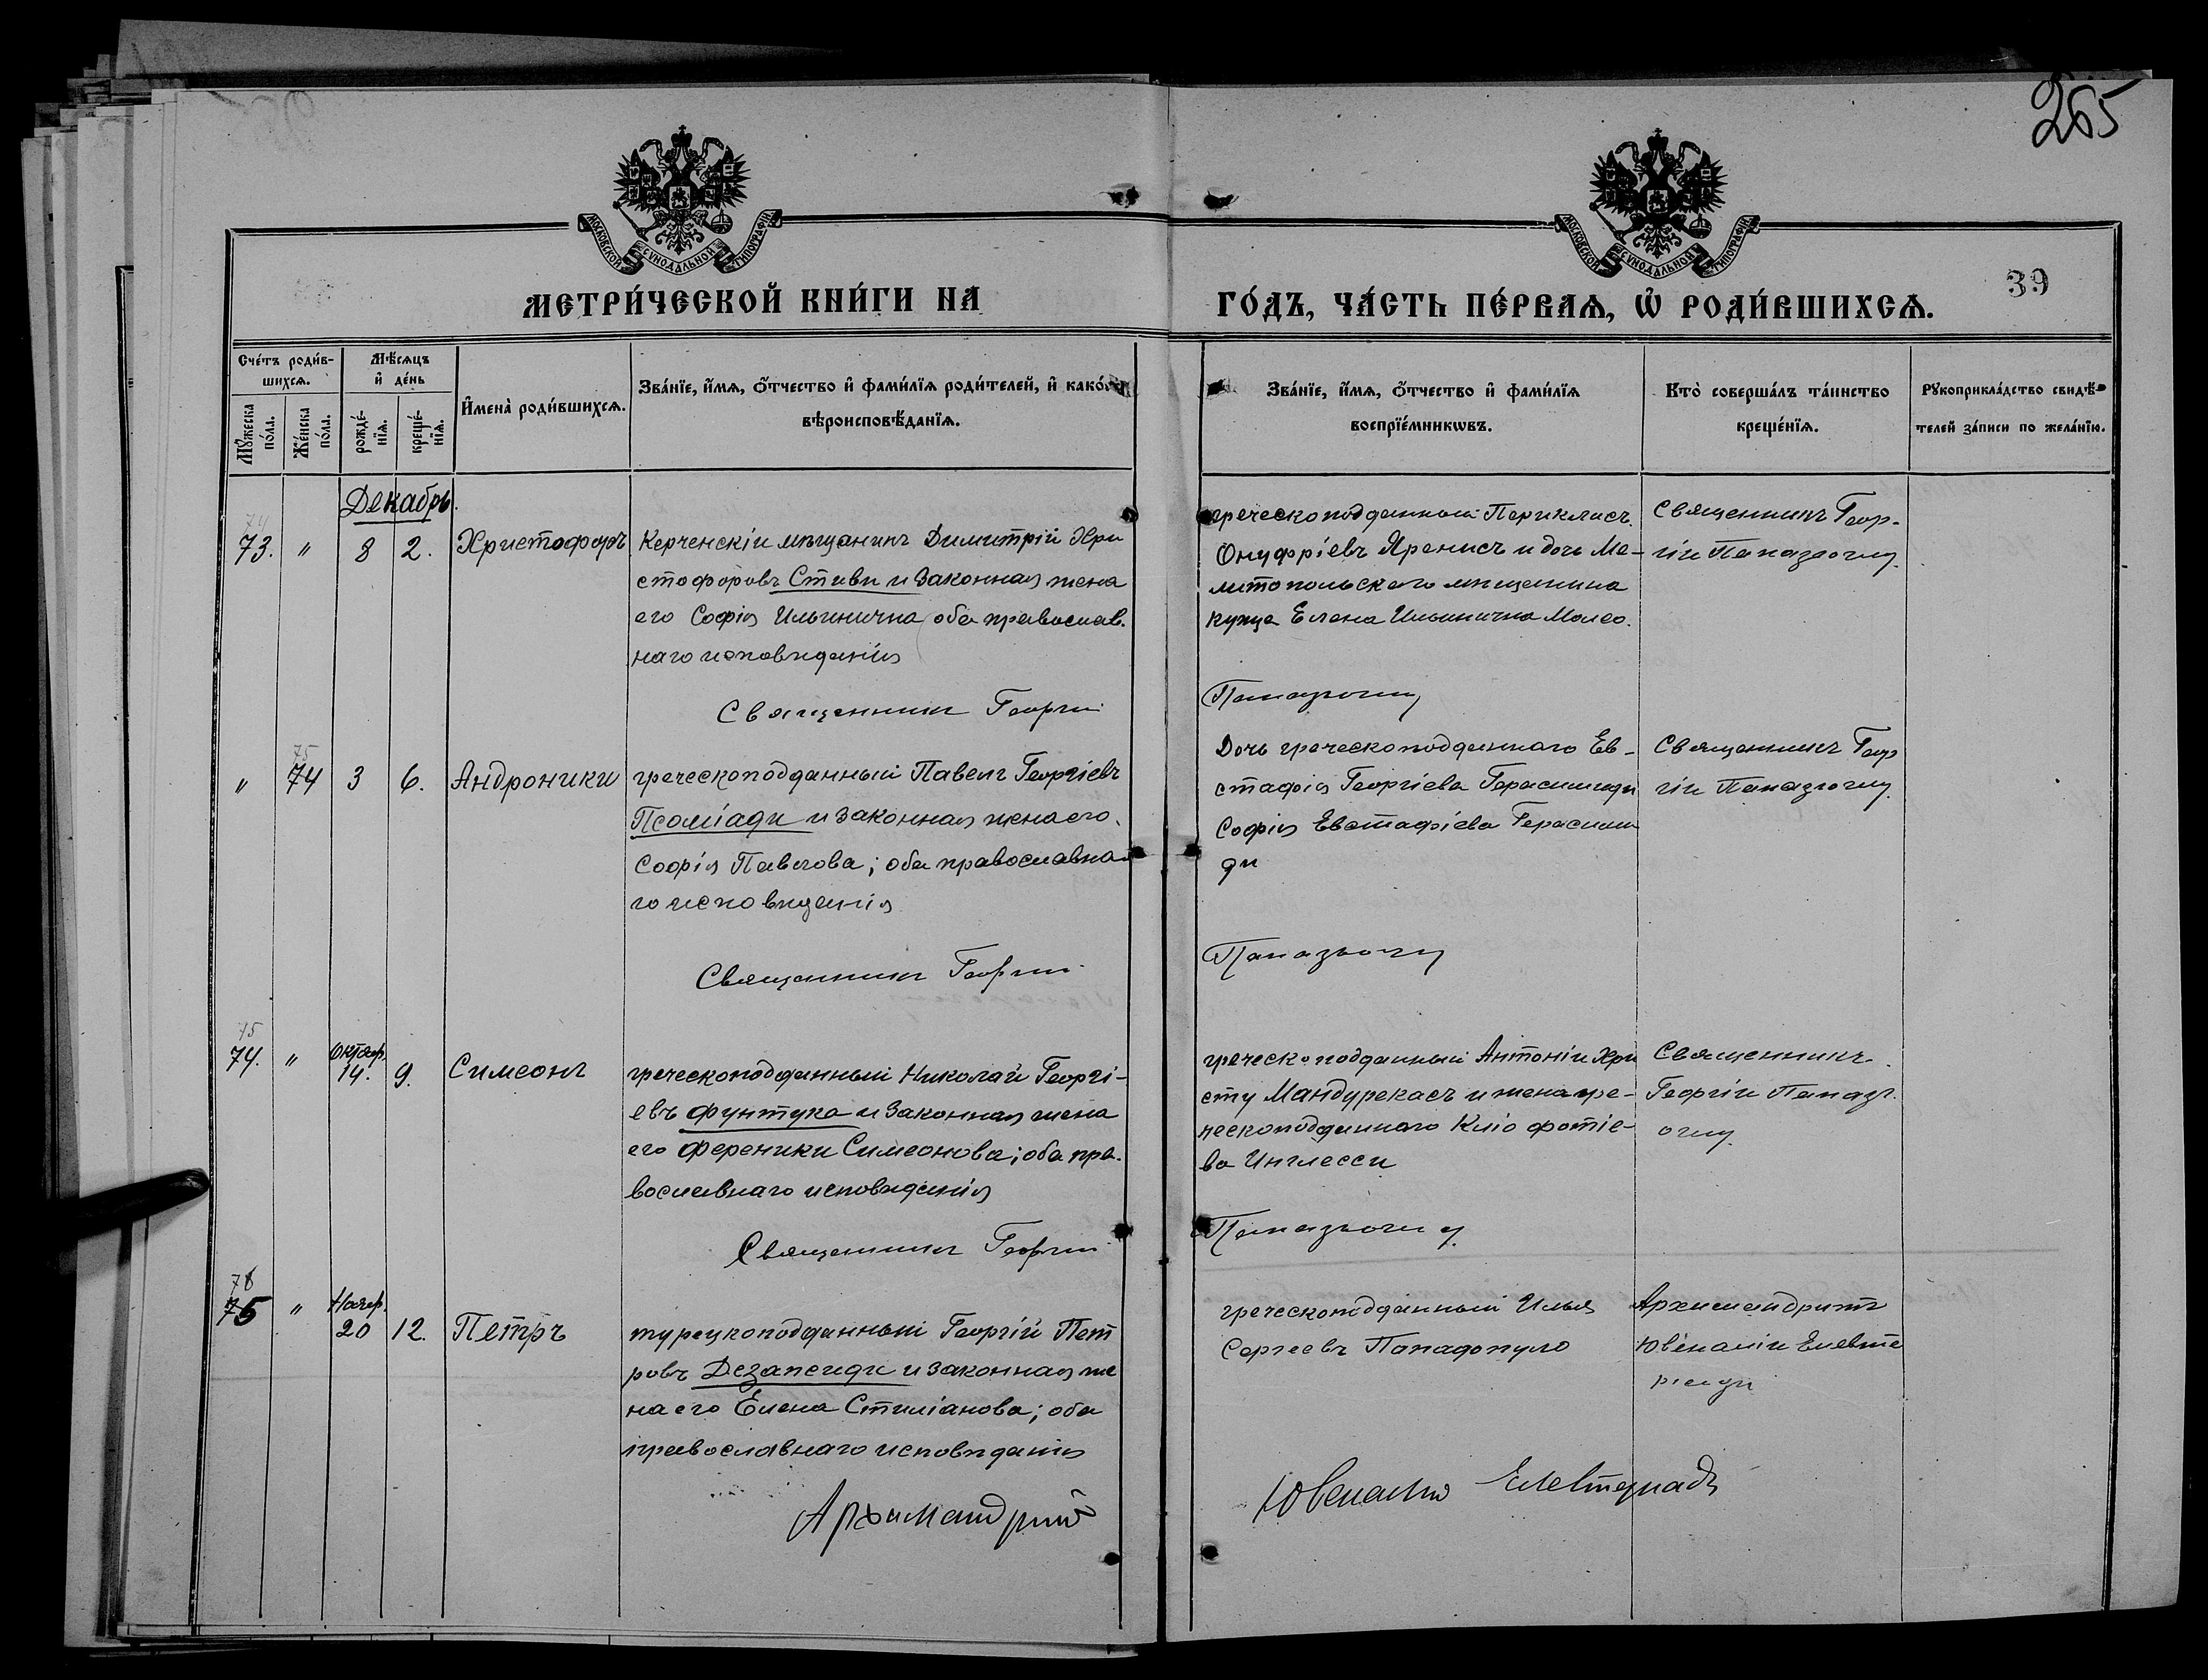 265
39
МОСКОВСКОЙ СѴНОДАЛЬНОЙ ТИПОГРАФІИ
МОСКОВСКОЙ СѴНОДАЛЬНОЙ ТИПОГРАФІИ
МЕТРИ́ЧЕСКОЙ КНИ́ГИ НА
ГО́ДЪ, ЧА́СТЬ ПЕ́РВАѦ, Ѿ РОДИ́ВШИХСѦ.
Сче́тъ роди́в-
шихсѧ.
Мꙋ́жеска по́ла.
Же́нска по́ла.
Мѣ́сѧцъ и҆ де́нь
рожде́-
нїѧ.
креще́-
нїѧ.
И҆мена̀ роди́вшихсѧ.
Зва́нїе, и҆́мѧ, ѻ҆́тчество и҆ фами́лїѧ роди́телей, и҆ како́гѡ
вѣроисповѣ́данїѧ.
Зва́нїе, и҆́мѧ, ѻ҆́тчество и҆ фами́лїѧ
воспрїе́мникѡвъ.
Кто̀ соверша́лъ та́инство
креще́нїѧ.
Рꙋкоприкла́дство свидѣ́-
телей за́писи по жела́нїю.
Декабрь.
74
73. " 8 2. Христофоръ
Керченскій мѣщанинъ Димитрій Хри
стофоровъ Стиви и законная жена
его Софія Ильинична оба православ.
наго исповѣданія
Священникъ Георгій
греческоподданный Периклисъ
Онуфріевъ Яренисъ и дочь Ме-
литопольского мѣщанина
купца Елена Ильинична Малео.
Папазоглу
Священникъ Геор-
гій Папазоглу.
75
" 74 3 6. Андроники
греческоподданный Павелъ Георгіевъ
Псоміади и законная жена его
Софія Павлова; оба православна-
го исповѣданія
Священникъ Георгій
Дочь греческоподданнаго Ев-
стафія Георгіева Герасимиди
Софія Евстафіева Герасими
ди
Папазоглу
Священникъ Геор
гій Папазоглу.
75
74. " Октяр. 14. 9. Симеонъ
греческоподданный Николай Георгі-
евъ Фунтука и законная жена
его Ференики Симеонова; оба пра-
вославнаго исповѣданія
Священникъ Георгій
греческоподданный Антоній Хри
сту Мандурекасъ и жена гре-
ческоподданнаго Кліо Фотіе-
ва Инглесси
Папазоглу.
Священникъ
Георгій Папаз
оглу.
76
75 " Нояб. 20 12. Петръ
турецкоподданный Георгій Пет
ровъ Дезапсиди и законная же
на его Елена Стиліанова; оба
православнаго исповѣданія
Архимандритъ
греческоподданный Илья
Сергеевъ Пападопуло
Ювеналій Елевтеріадъ
Архимандритъ
Ювеналій Елевте
ріади